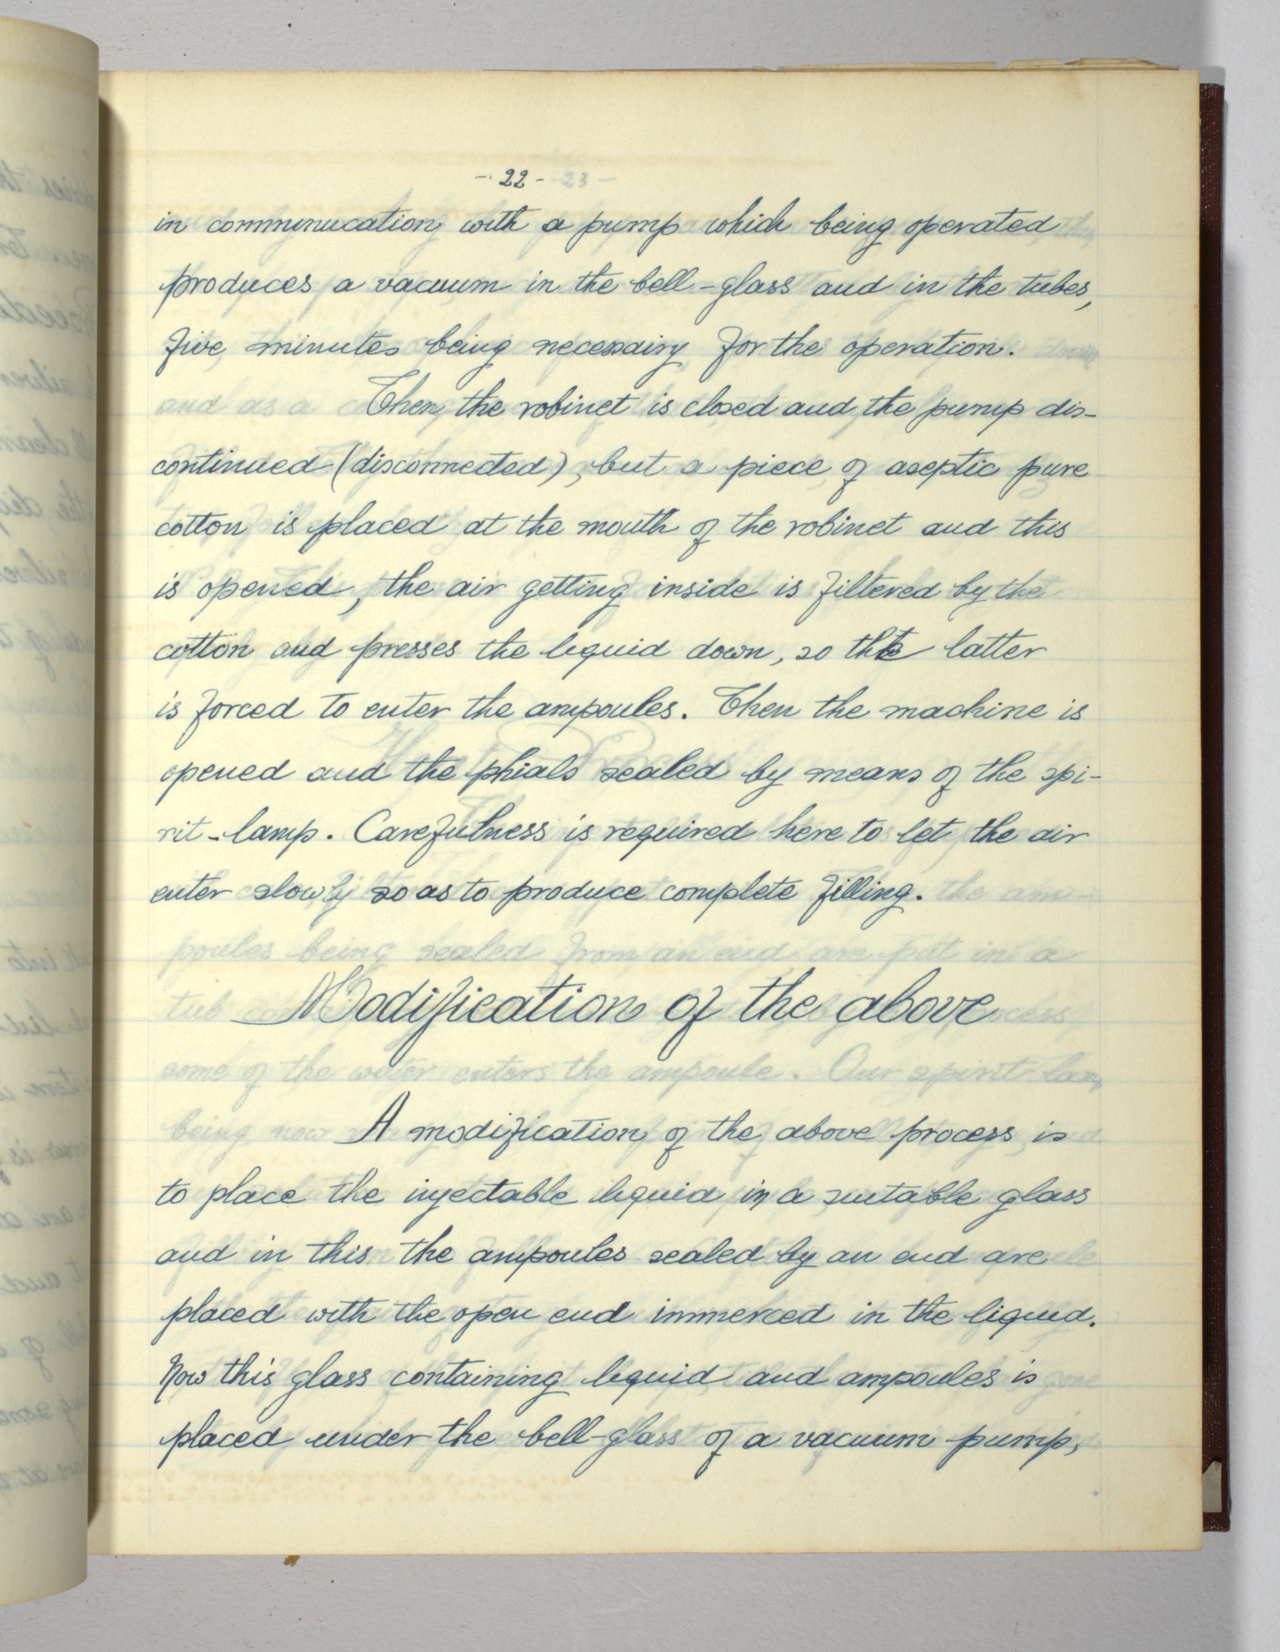 - 22 -
in communication with a pump which being operated
produces a vacuum in the bell-glass and in the tubes,
five minutes being necessairy for the operation.
Then the robinet is closed and the pump dis-
continued (disconnected), but a piece of aseptic pure
cotton is placed at the mouth of the robinet and this
is opened, the air getting inside is filtered by the
cotton and presses the liquid down, so the latter
is forced to enter the ampoules. Then the machine is
opened and the phials sealed by means of the spi-
rit-lamp. Carefulness is required here to let the air
enter slowly so as to produce complete filling.
Modification of the above
A modification of the above process is
to place the injectable liquid in a suitable glass
and in this the ampoules sealed by an end are
placed with the open end immerced in the liquid.
Now this glass containing liquid and ampoules is
placed under the bell-glass of a vacuum pump,